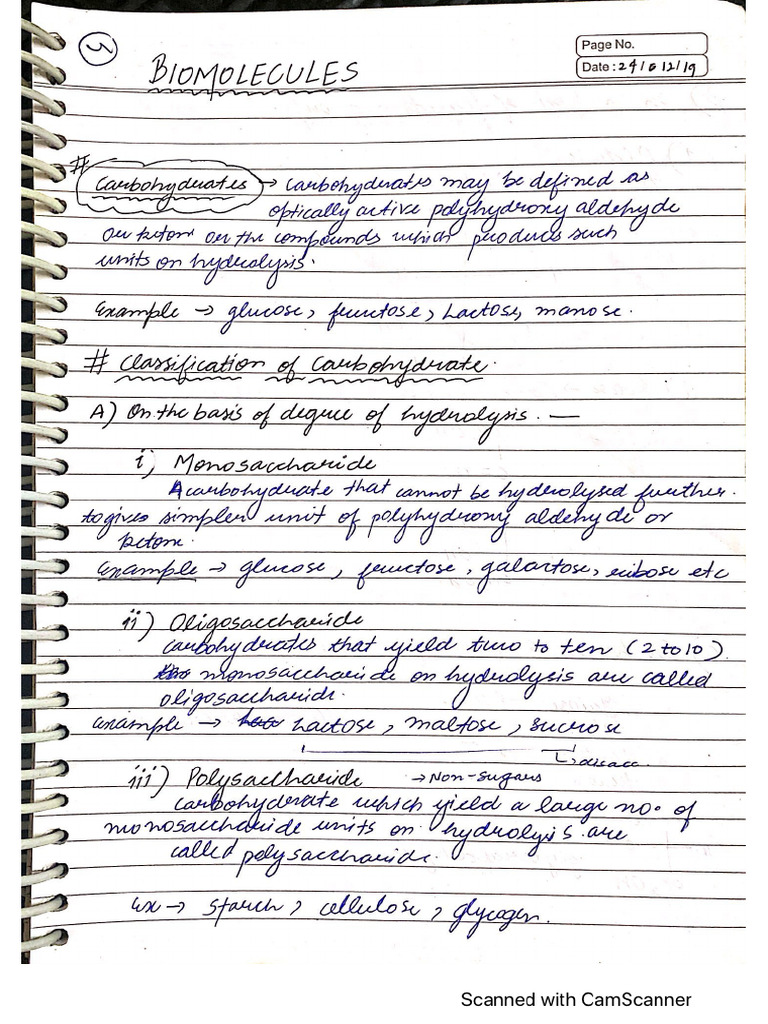 5
Page No.
Date: 24/12/19
BIOMOLECULES
# Carbohydrates → Carbohydrates may be defined as
optically active polyhydroxy aldehyde
or ketone or the compounds which produces such
units on hydrolysis.
Example → glucose, fructose, Lactose, manose.
# Classification of Carbohydrate.
A) On the basis of degree of hydrolysis. —
i) Monosaccharide
A carbohydrate that cannot be hydrolysed further.
to gives simpler unit of polyhydroxy aldehyde or
ketone.
Example → glucose, fructose, galactose, ribose etc
ii) Oligosaccharide
carbohydrates that yield two to ten (2 to 10)
monosaccharide on hydrolysis are called
oligosaccharide.
example → Lactose, maltose, sucrose
disacc.
iii) Polysaccharide → Non-sugars
carbohydrate which yield a large no. of
monosaccharide units on hydrolysis are
called polysaccharide.
Ex → starch, cellulose, glycogen.
Scanned with CamScanner